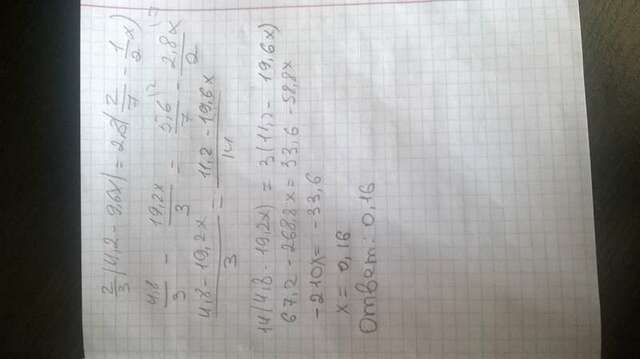 2/3(4,2 - 9,6x) = 2,8(2/7 - 1/2x)
4,8/3 - 19,2x/3 = 5,6\2/7 - 2,8x\7/2
4,8-19,2x/3 = 11,2-19,6x/14
14(4,8 - 19,2x) = 3(11,2 - 19,6x)
67,2 - 268,8x = 33,6 - 58,8x
-210x = -33,6
x = 0,16
Ответ: 0,16